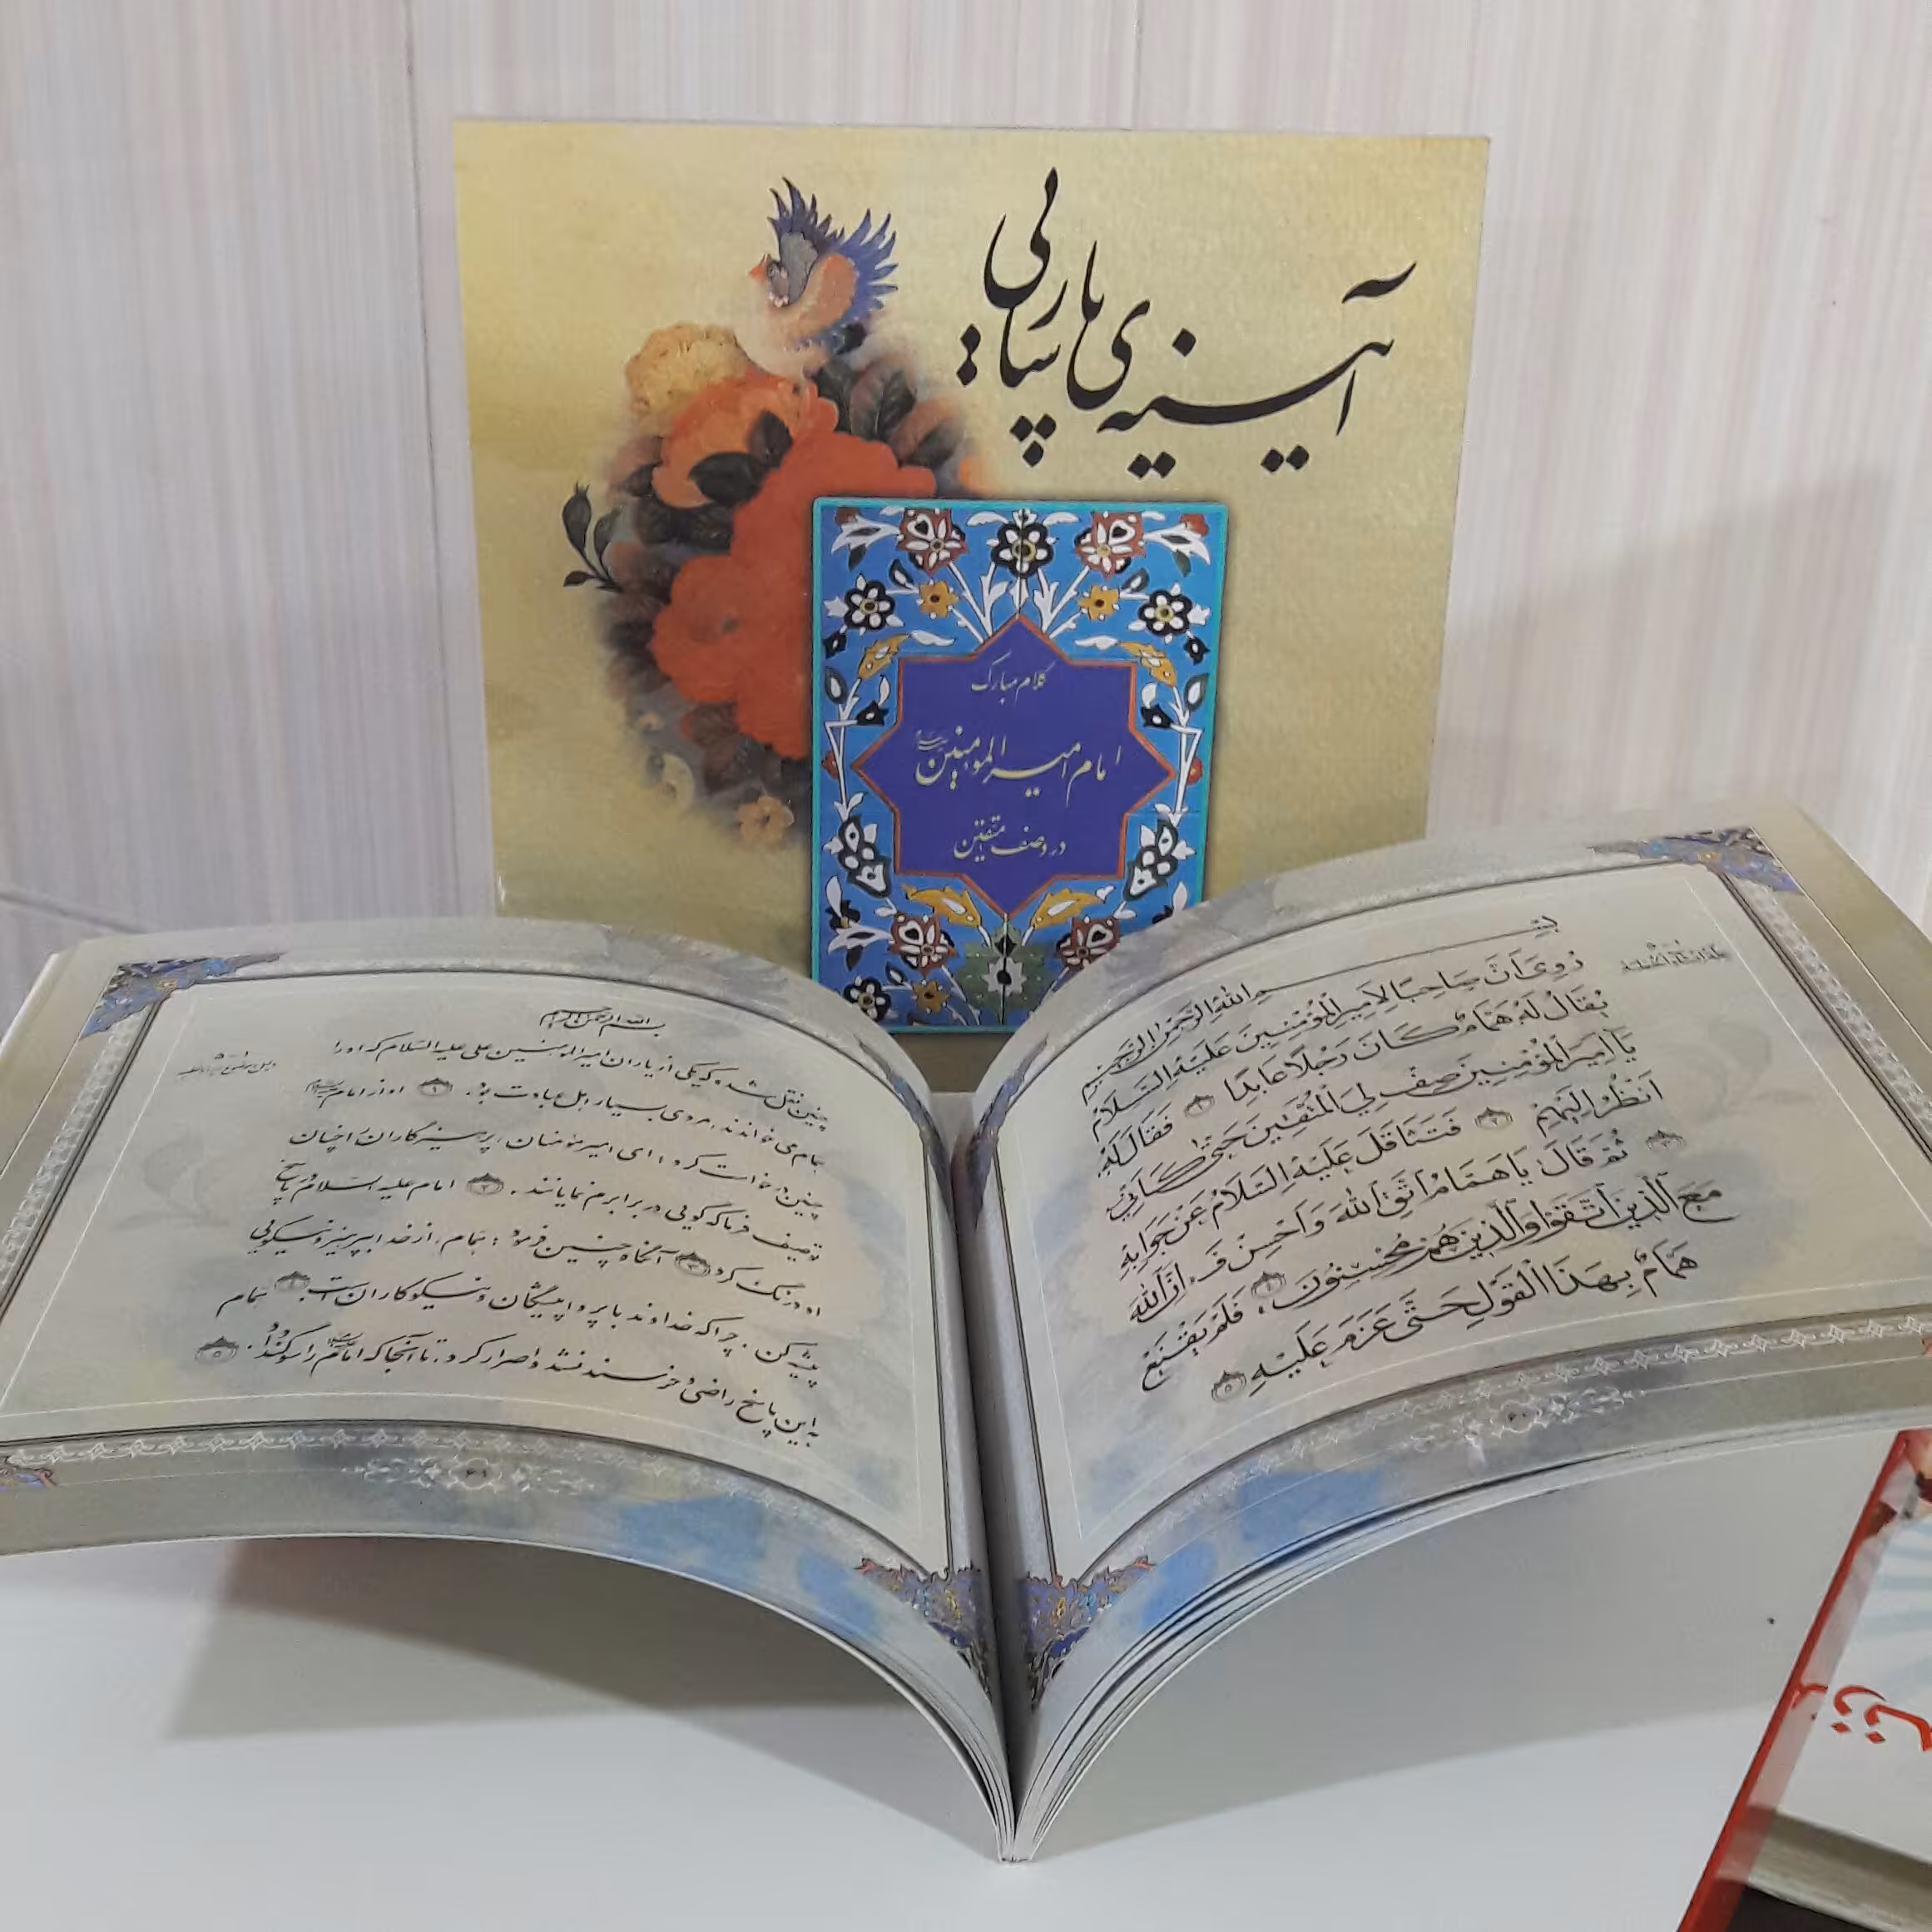 آیینه‌ی پارسایی
کلام مبارک
امام امیرالمومنین
در وصف متقین
بِسْمِ اللهِ الرَّحْمٰنِ الرَّحِيمِ
رُوِيَ أَنَّ صَاحِبًا لِأَمِيرِ الْمُؤْمِنِينَ عَلَيْهِ السَّلَامُ
يُقَالُ لَهُ هَمَّامٌ كَانَ رَجُلًا عَابِدًا ۱ فَقَالَ لَهُ
يَا أَمِيرَ الْمُؤْمِنِينَ صِفْ لِيَ الْمُتَّقِينَ حَتَّى كَأَنِّي
أَنْظُرُ إِلَيْهِمْ ۲ فَتَثَاقَلَ عَلَيْهِ السَّلَامُ عَنْ جَوَابِهِ
۳ ثُمَّ قَالَ يَا هَمَّامُ اتَّقِ اللهَ وَأَحْسِنْ فَـ إِنَّ اللهَ
مَعَ الَّذِينَ اتَّقَوْا وَالَّذِينَ هُمْ مُحْسِنُونَ ۴، فَلَمْ يَقْنَعْ
هَمَّامٌ بِهَذَا الْقَوْلِ حَتَّى عَزَمَ عَلَيْهِ ۵
۶۰
بسم الله الرحمن الرحیم
چنین نقل شده که یکی از یاران امیرالمومنین علی علیه السلام که او را
همام می خواندند، مردی بسیار اهل عبادت بود. ۱ او از امام
چنین درخواست کرد: ای امیر مومنان، پرهیزکاران را چنان
توصیف فرما که گویی در برابرم نمایانند. ۲ امام علیه السلام در پاسخ
او درنگ کرد ۳ آنگاه چنین فرمود: همام، از خدا بپرهیز و نیکویی
پیشه کن. چرا که خداوند با پروا پیشگان و نیکوکاران است. ۴ همام
به این پاسخ راضی و خرسند نشد و اصرار کرد، تا آنجا که امام را سوگند داد. ۵
۶۱